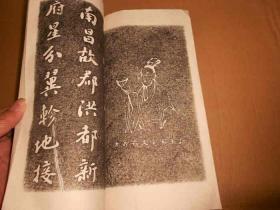 南昌故郡洪都新
府星分翼軫地接